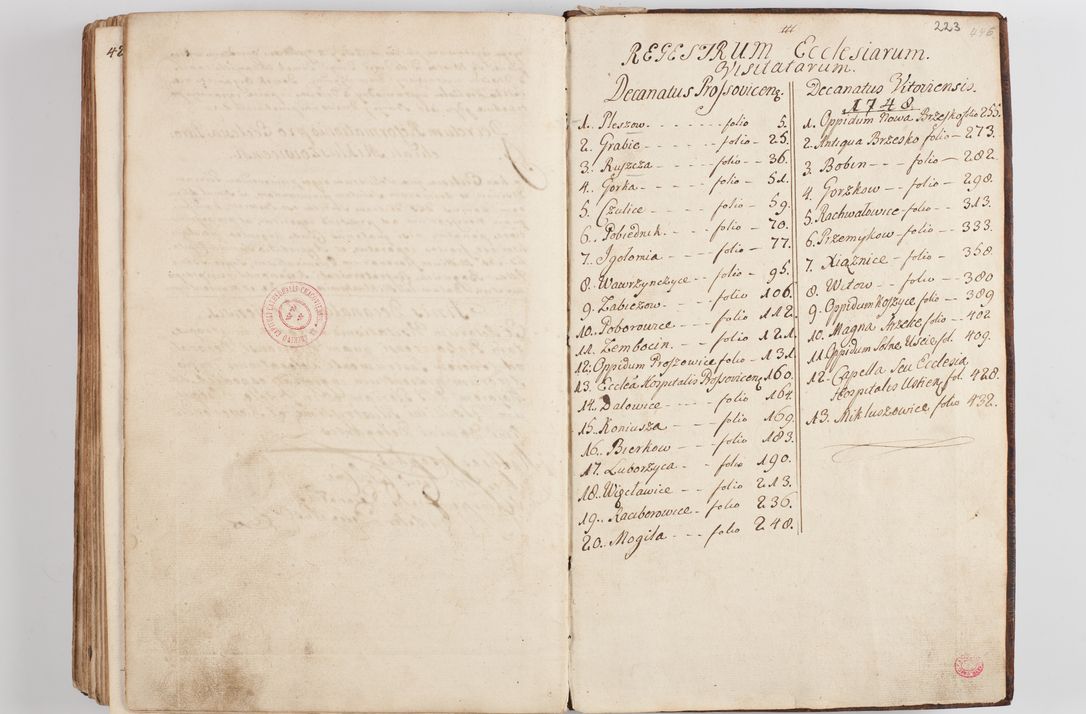 42
223
446
REGESTRUM Ecclesiarum.
Visitatarum.
Decanatus Prossovicen.
1. Pleszow. folio 5.
2. Grabie folio 25.
3. Ruszcza folio 36.
4. Gorka folio 51.
5. Czulice folio 59.
6. Pobiednik. folio 70.
7. Jgolomia folio 77.
8. Wawrzynczyce folio 95.
9. Zabiezow. folio 106.
10. Poborowice folio 112.
11. Zembocin. folio 121.
12. Oppidum Proszowice folio 131.
13. Ecclea Hospitalis Prossovicen 160.
14. Dalowice folio 164.
15. Koniusza folio 169.
16. Bierkow folio 183.
17. Luborzyca folio 190.
18. Więcławice folio 213.
19. Raciborowice folio 236.
20. Mogiła folio 248.
Decanatus Vitoviensis.
1748.
1. Oppidum Nowa Brzesko folio 255.
2. Antiqua Brzesko folio 273.
3. Bobin folio 282.
4. Gorzkow folio 298.
5. Rachwalowice folio 313.
6. Przemykow folio 333.
7. Xiąznice folio 358.
8. Witow folio 380
9. Oppidum Koszyce folio 389
10. Magna folio 402
11. Oppidum Solne Uscie fol. 409.
12. Capella Seu Ecclesia
Hospitalis Ustien. fol. 428.
13. Mikluszowice folio 432.